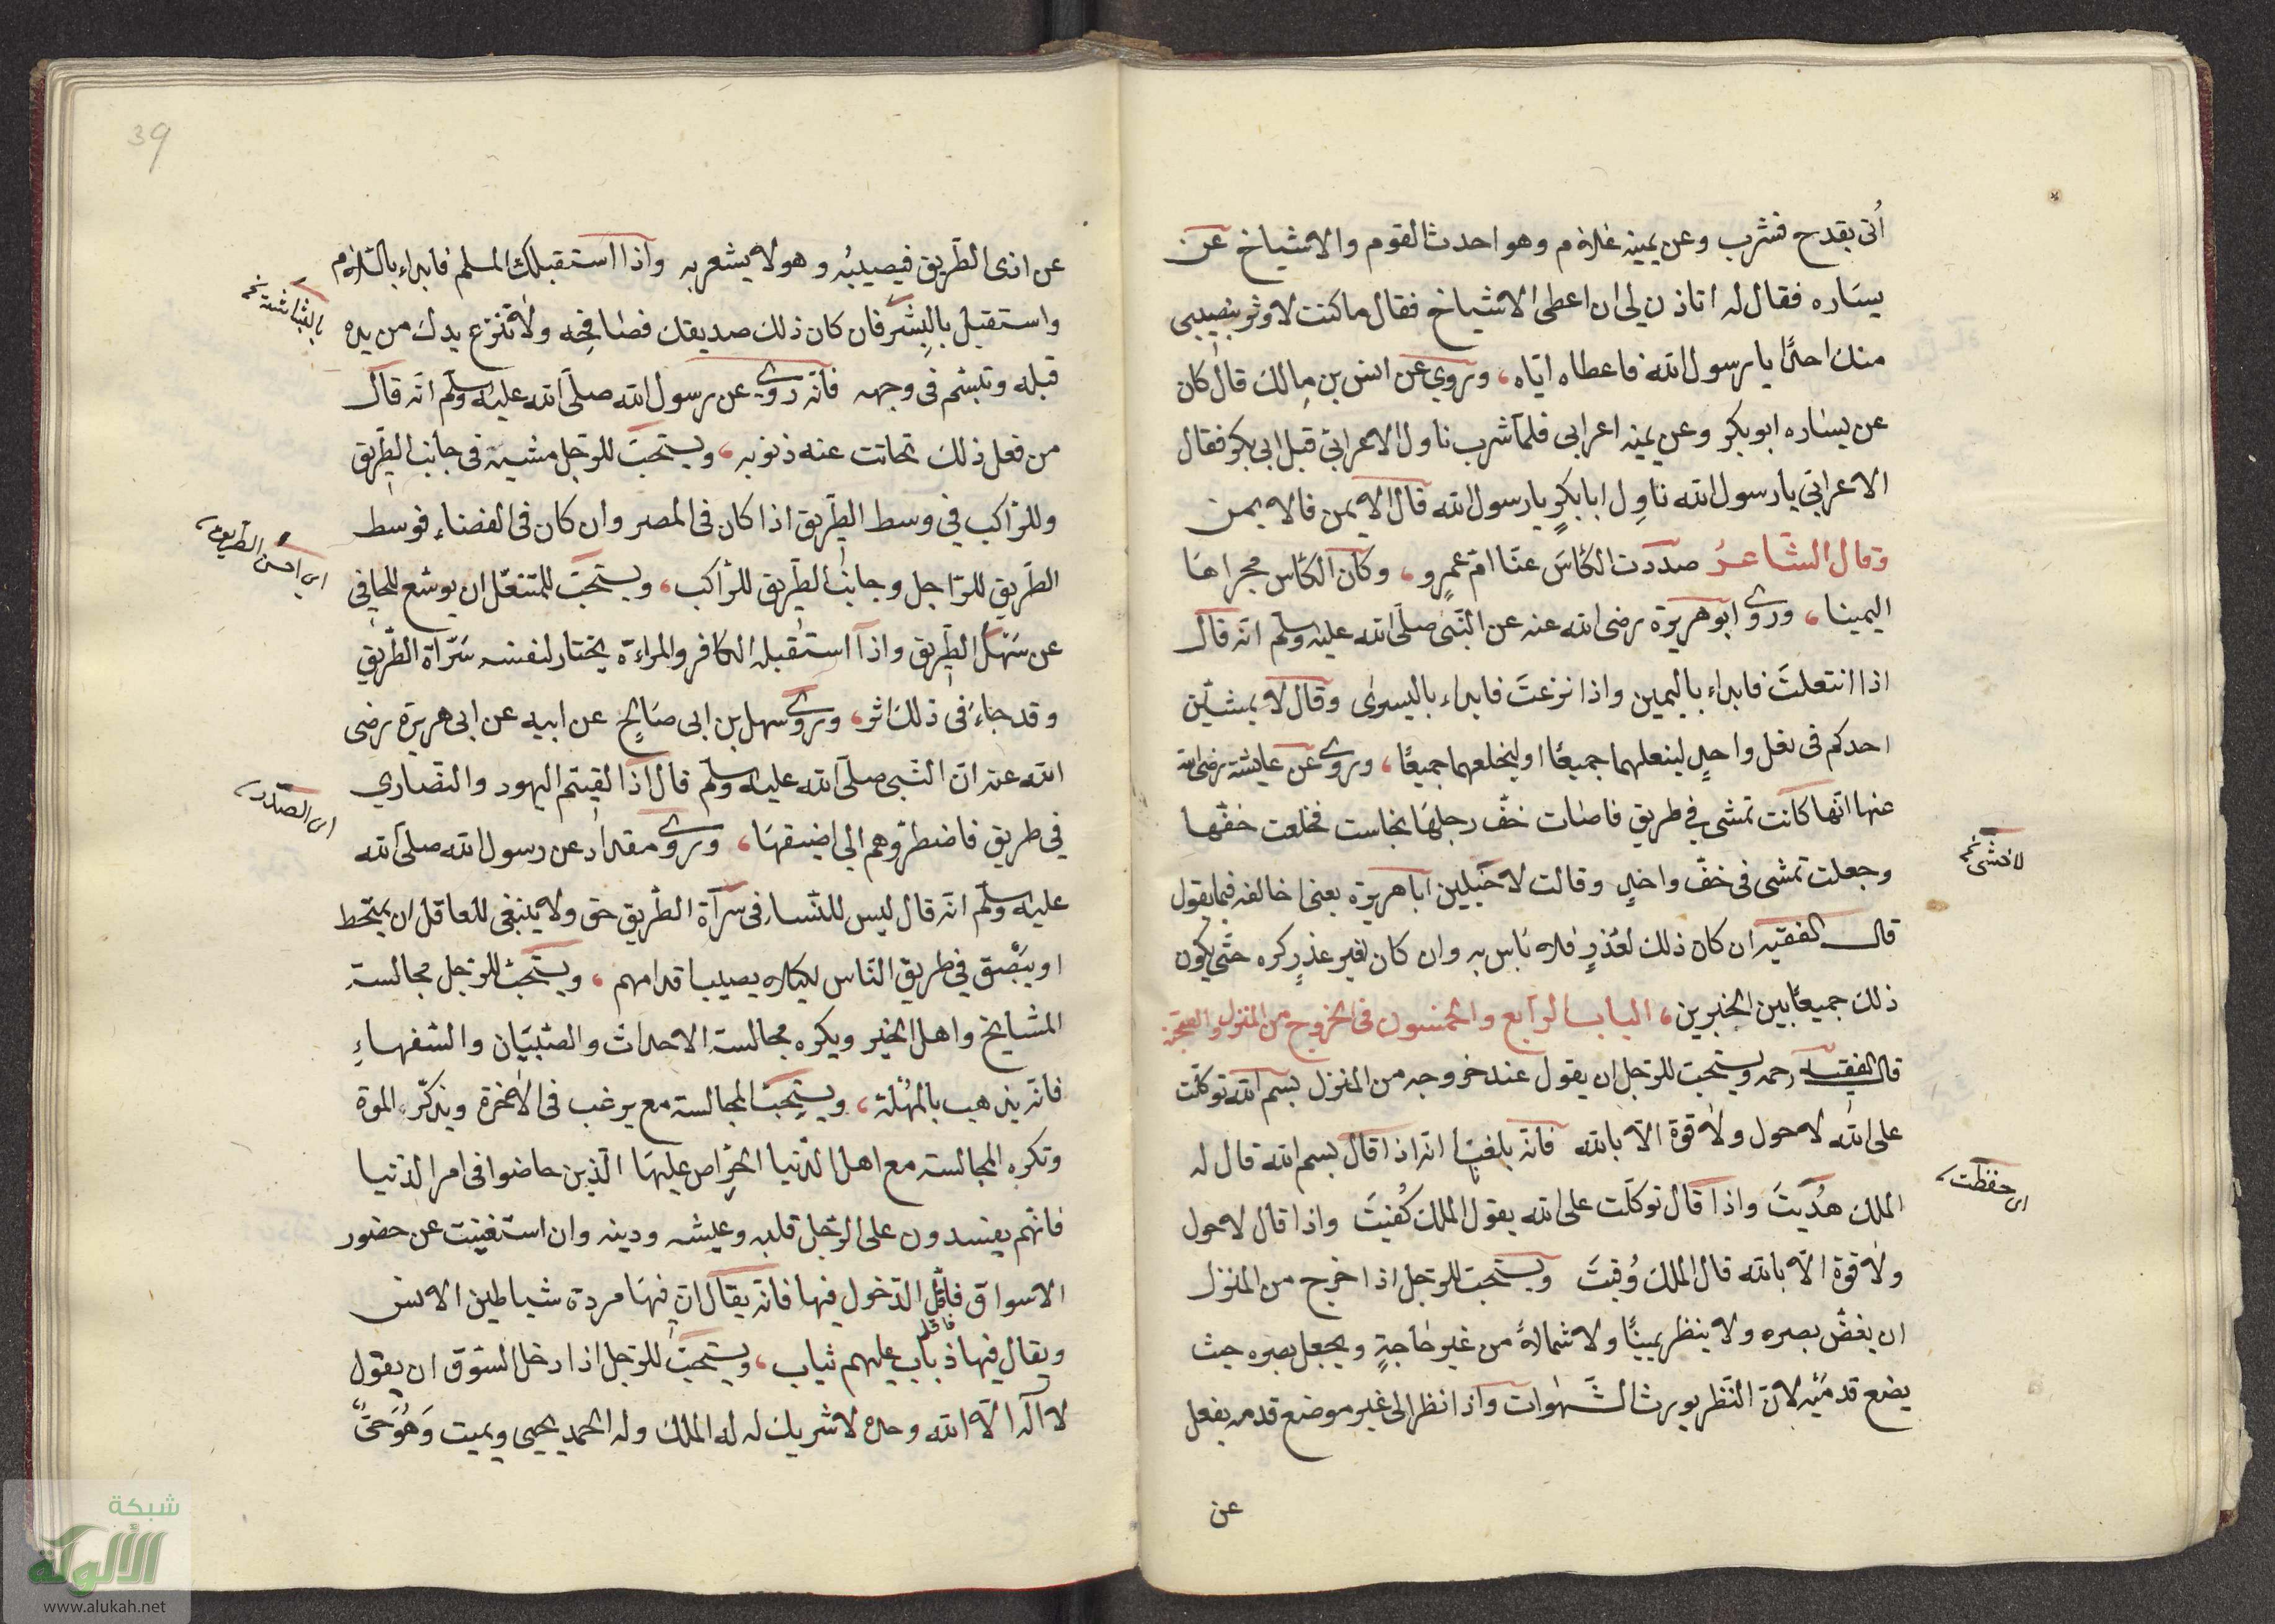 أُتى بقدح فشرب وعن يمينه غلام وهو احدث القوم والاشياخ عن
يسَاره فقال له اتاذن لى ان اعطى الاشياخ فقال ما كنت لاوثر بنصيبى
منك احدًا يا رسول الله فاعطاه ايّاه، وروى عن انس بن مالك قال كان
عن يساره ابو بكر وعن يمينه اعرابى فلمّا شرب ناول الاعرابىّ قبل ابى بكر فقال
الاعرابىّ يا رسول الله ناوِل ابا بكرٍ يا رسول الله قال الايمن فالايمن
وقال الشّاعرُ صددت الكأسَ عنّا امّ عمرٍو، وكان الكأس مجراهَا
اليمينا، وروى ابو هريرة رضى الله عنه عن النّبىّ صلّى الله عليه وسلّم انّه قال
اذا انتعلتَ فابداء باليمين واذا نزعتَ فابداء باليسرى وقال لا يمشيّن
احدكم فى نعل واحدٍ لينعلهما جميعًا او ليخلعهما جميعًا، وروى عن عايشة رضى الله
عنها انّها كانت تمشى فى طريق فاصاب خفّ رجلها نجاست فخلعت خفّها
وجعلت تمشى فى خفّ واحدٍ وقالت لا ابا هريرة يعنى اخالفه فيما يقول
لاخشى نخ
قال الفقيه ان كان ذلك لعُذرٍ فلا بَاس به وان كان لغير عذرٍ كره حتّى يكون
ذلك جميعًا بين الخبرين، الباب الرابع والخمسون فى الخروج من المنزل والصحبة
قال الفقيه رحمه ويستحبّ للرّجل ان يقول عند خروجه من المنزل بسم الله توكّلت
على الله لا حول ولا قوة الّا بالله فانّه بلغنا انّه اذا قال بسم الله قال له
الملك هُديتَ واذا قال توكّلت على الله يقول الملك كُفيتَ واذا قال لا حول
اى حفظت،
ولا قوة الّا بالله قال الملك وُقيتَ ويستحبّ للرّجل اذا خرج من المنزل
ان يغضّ بصره ولا ينظر يمينًا ولا شمالاً من غير حاجةٍ ويجعل بصره حيث
يضع قدمَيْه لانّ النّظر يورث الشّهوات واذا نظر الى غير موضع قدمه يغفل
عن
39
عن اذى الطّريق فيصيبُه وهو لا يشعر به واذا استقبلك المسلم فابداء بالسّلام
واستقبل بالبِشر فان كان ذلك صديقك فصافحِه ولا تنزع يدك من يده
بالبشاشة نخ
قبله وتبسّم فى وجهه فانّه روى عن رسول الله صلّى الله عليه وسلّم انّه قال
من فعل ذلك تحاتت عنه ذنوبه، ويستحبّ للرّجل مشيه فى جانب الطّريق
وللرّاكب فى وسط الطّريق اذا كان فى المصر وان كان فى الفضاء فوسط
الطّريق للرّاجل وجانب الطّريق للرّاكب، ويستحبّ للمتنعّل ان يوسّع للحافى
اى احسن الطريق،
عن سَهل الطّريق واذا استقبله الكافر والمراءة يختار لنفسه سَرّاة الطّريق
وقد جاءَ فى ذلك اثر، وروى سهل بن ابى صَالحٍ عن ابيه عن ابى هريرة رضى
الله عنه انّ النّبى صلّى الله عليه وسلّم قال اذا لقيتم اليهود والنّصارى
فى طريق فاضطرّوهم الى اضيقهَا، وروى مقداد عن رسول الله صلّى الله
اى الصدر،
عليه وسلّم انّه قال ليس للنّساء فى سرآة الطّريق حق ولا ينبغى للعاقل ان يتمخط
او يبْصق فى طريق النّاس لكيلا يصيب اقدامهم، ويستحبّ للرّجل مجالسة
المشايخ واهل الخير ويكره مجالسة الاحداث والصّبيَان والسّفهاءِ
فانّه يذهب بالمُهْلة، ويستحبّ المجالسة مع يرغب فى الاخرة ويذكّر الموة
وتكره المجالسة مع اهل الدّنيا الحِرّاص عليهَا الّذين خاضوا فى امر الدّنيا
فانّهم يفسدون على الرّجل قلبه وعيشه ودينه وان استغنيت عن حضور
الاسواق فاقلّ الدّخول فيها فانّه يقال انّ فيهَا مردة شياطين الانس
فاقلل
ويقال فيها ذباب عليهم ثياب، ويستحبّ للرّجل اذا دخل السّوق ان يقول
لا آله الّا الله وحده لا شريك له له الملك وله الحمد يحيى ويميت وَهُوَ حَىٌّ
شبكة
الألوكة
www.alukah.net